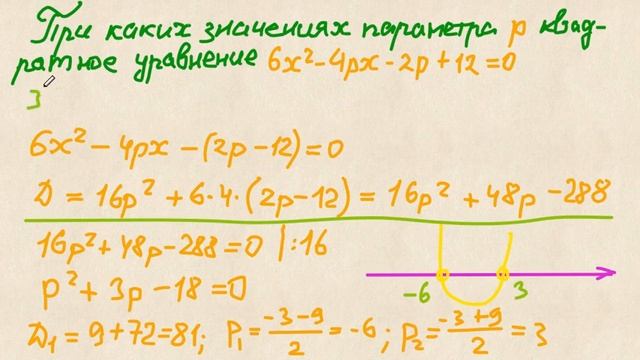 При каких значениях параметра p квад-
ратное уравнение 6x²-4px-2p+12=0
3
6x² - 4px - (2p-12) = 0
D = 16p² + 6·4·(2p-12) = 16p² + 48p - 288
16p²+48p-288=0 |:16
p²+3p-18=0
-6 3
D₁ = 9+72=81; P₁ = (-3-9)/2 = -6; P₂ = (-3+9)/2 = 3